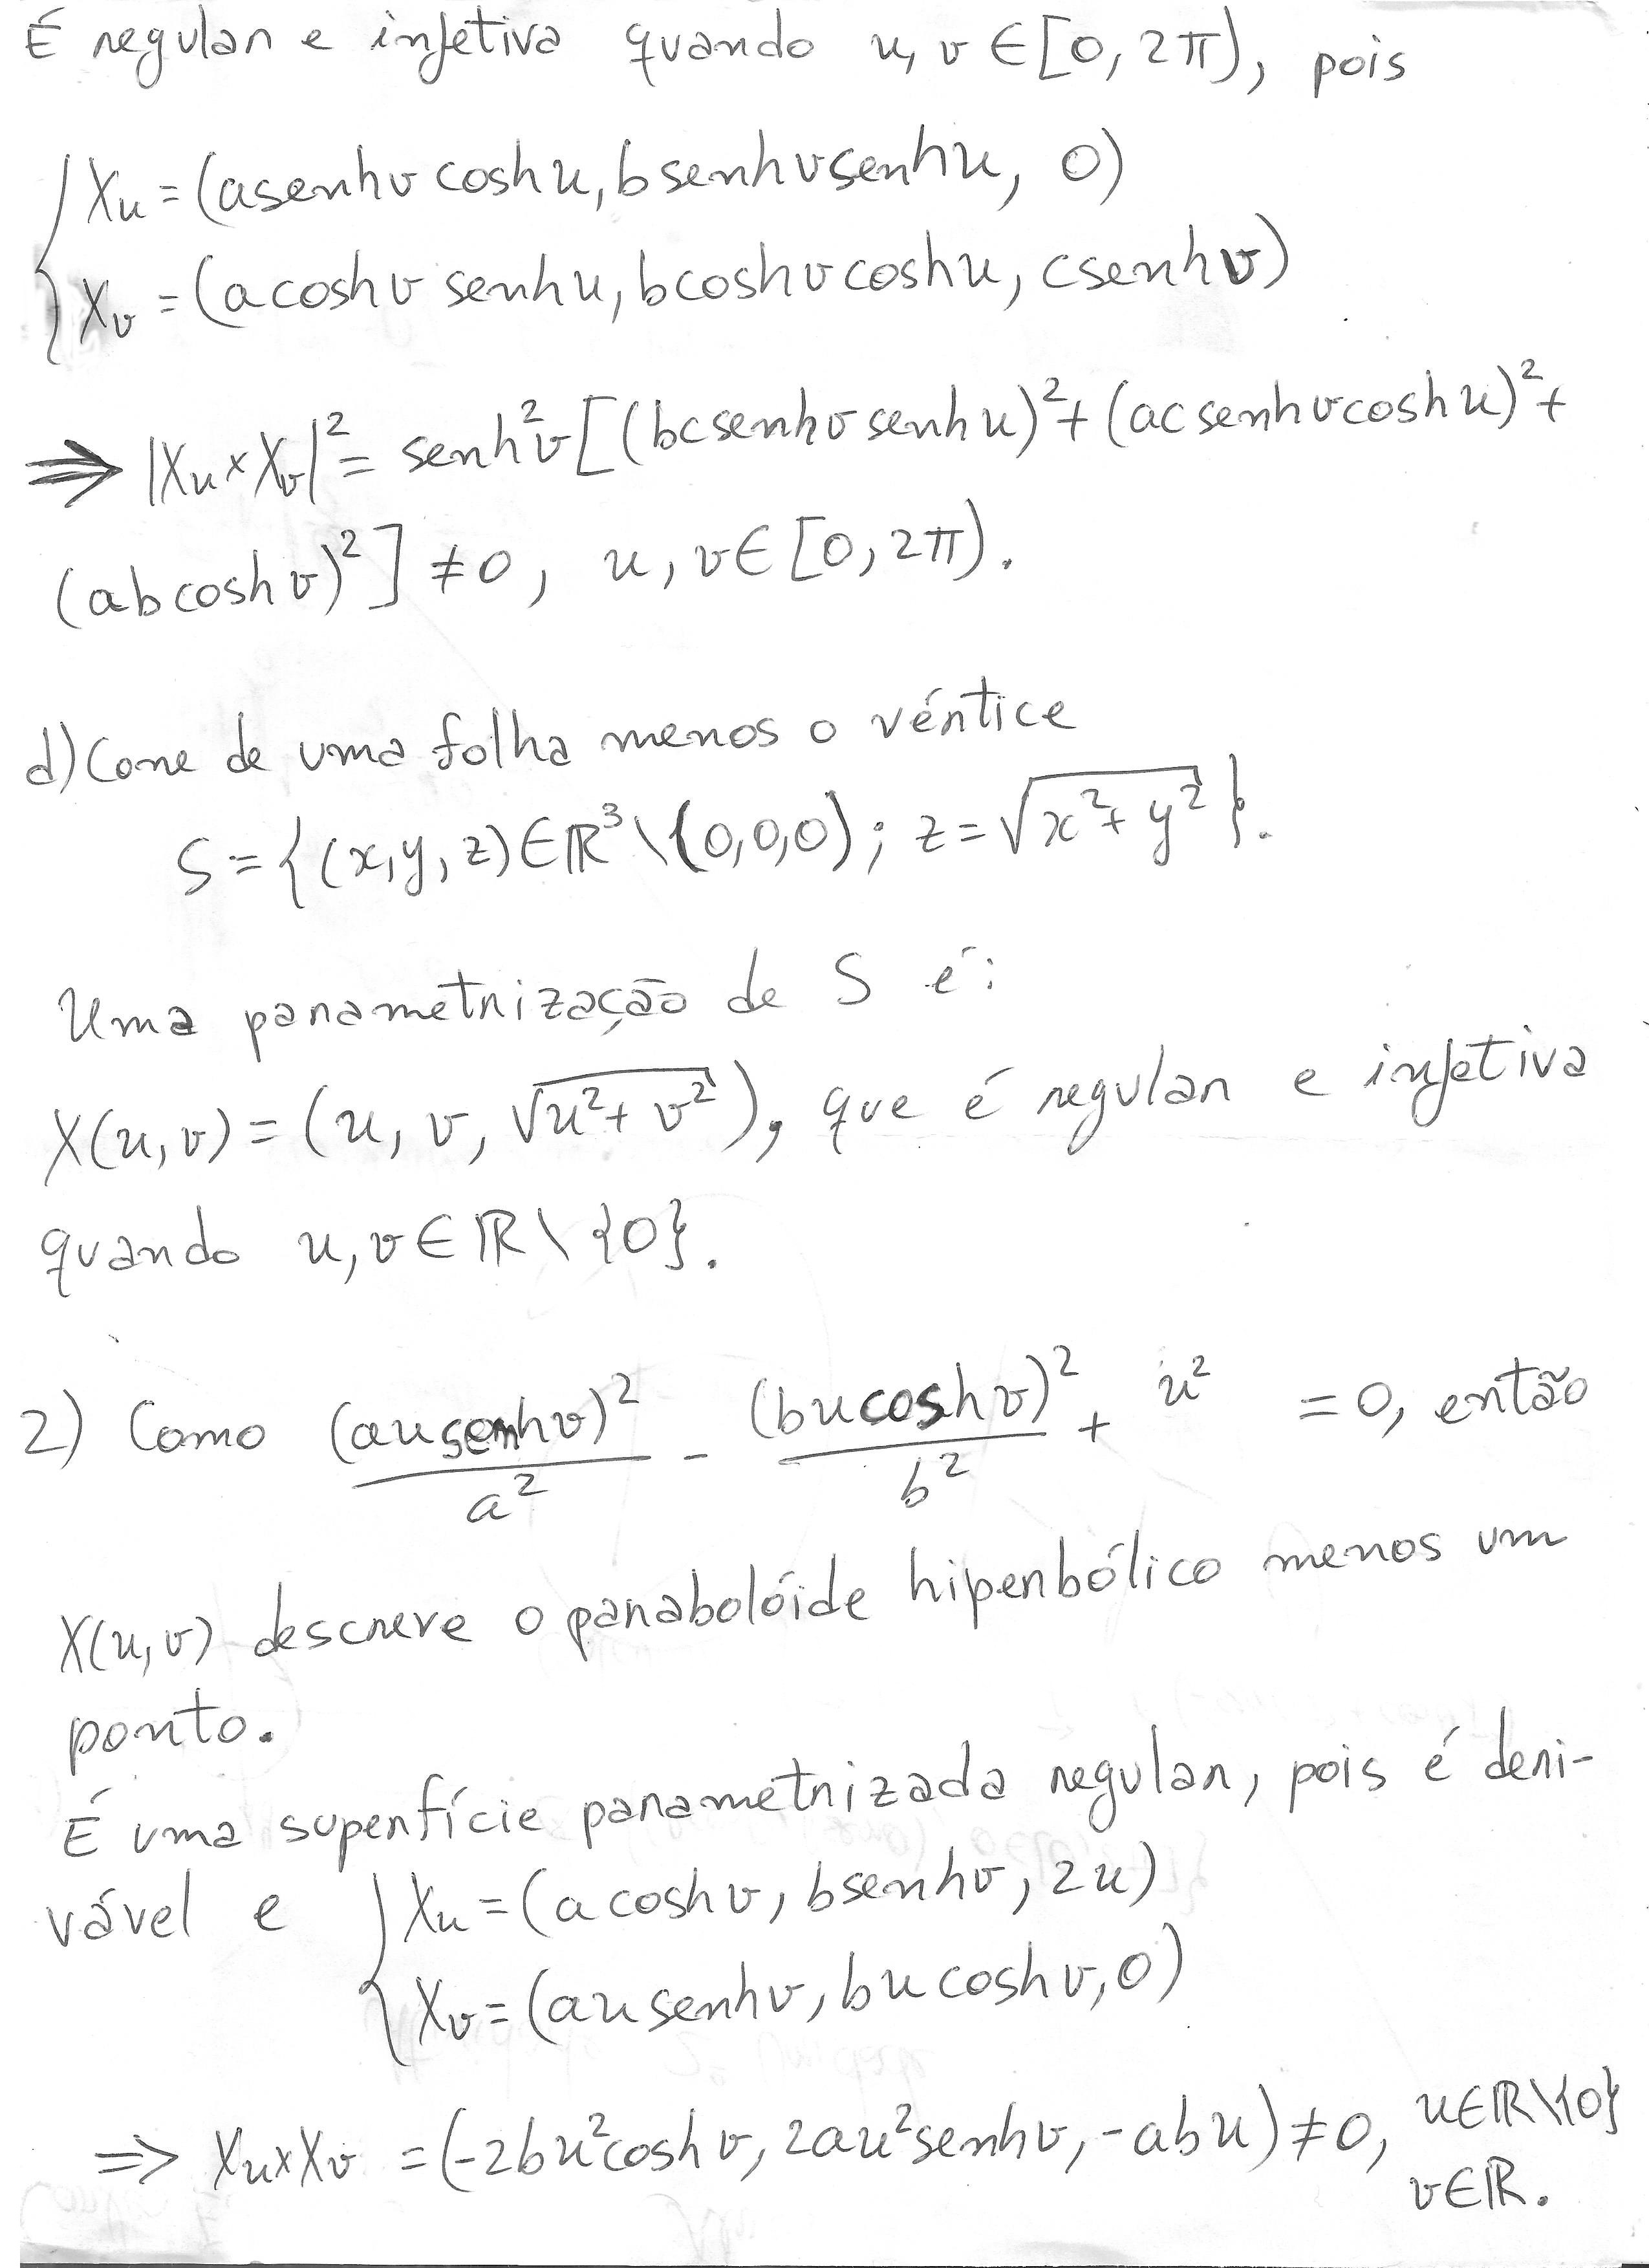 É regular e injetiva quando u, v ∈ [0, 2π), pois
{ Xu = (a senhv coshu, b senhv senhu, 0)
Xv = (a coshv senhu, b coshv coshu, c senhv)
⇒ |Xu × Xv|² = senh²v [(bc senhv senhu)² + (ac senhv coshu)² +
(ab coshv)²] ≠ 0, u, v ∈ [0, 2π).
d) Cone de uma folha menos o vértice
S = {(x, y, z) ∈ ℝ³ \ (0,0,0); z = √(x² + y²)}.
Uma parametrização de S é:
X(u, v) = (u, v, √(u² + v²)), que é regular e injetiva
quando u, v ∈ ℝ \ {0}.
2) Como (au senhv)²/a² - (bu coshv)²/b² + u² = 0, então
X(u, v) descreve o parabolóide hiperbólico menos um
ponto.
É uma superfície parametrizada regular, pois é deri-
vável e { Xu = (a coshv, b senhv, 2u)
Xv = (au senhv, bu coshv, 0)
⇒ Xu × Xv = (-2bu² coshv, 2au² senhv, -abu) ≠ 0, u ∈ ℝ \ {0}
v ∈ ℝ.